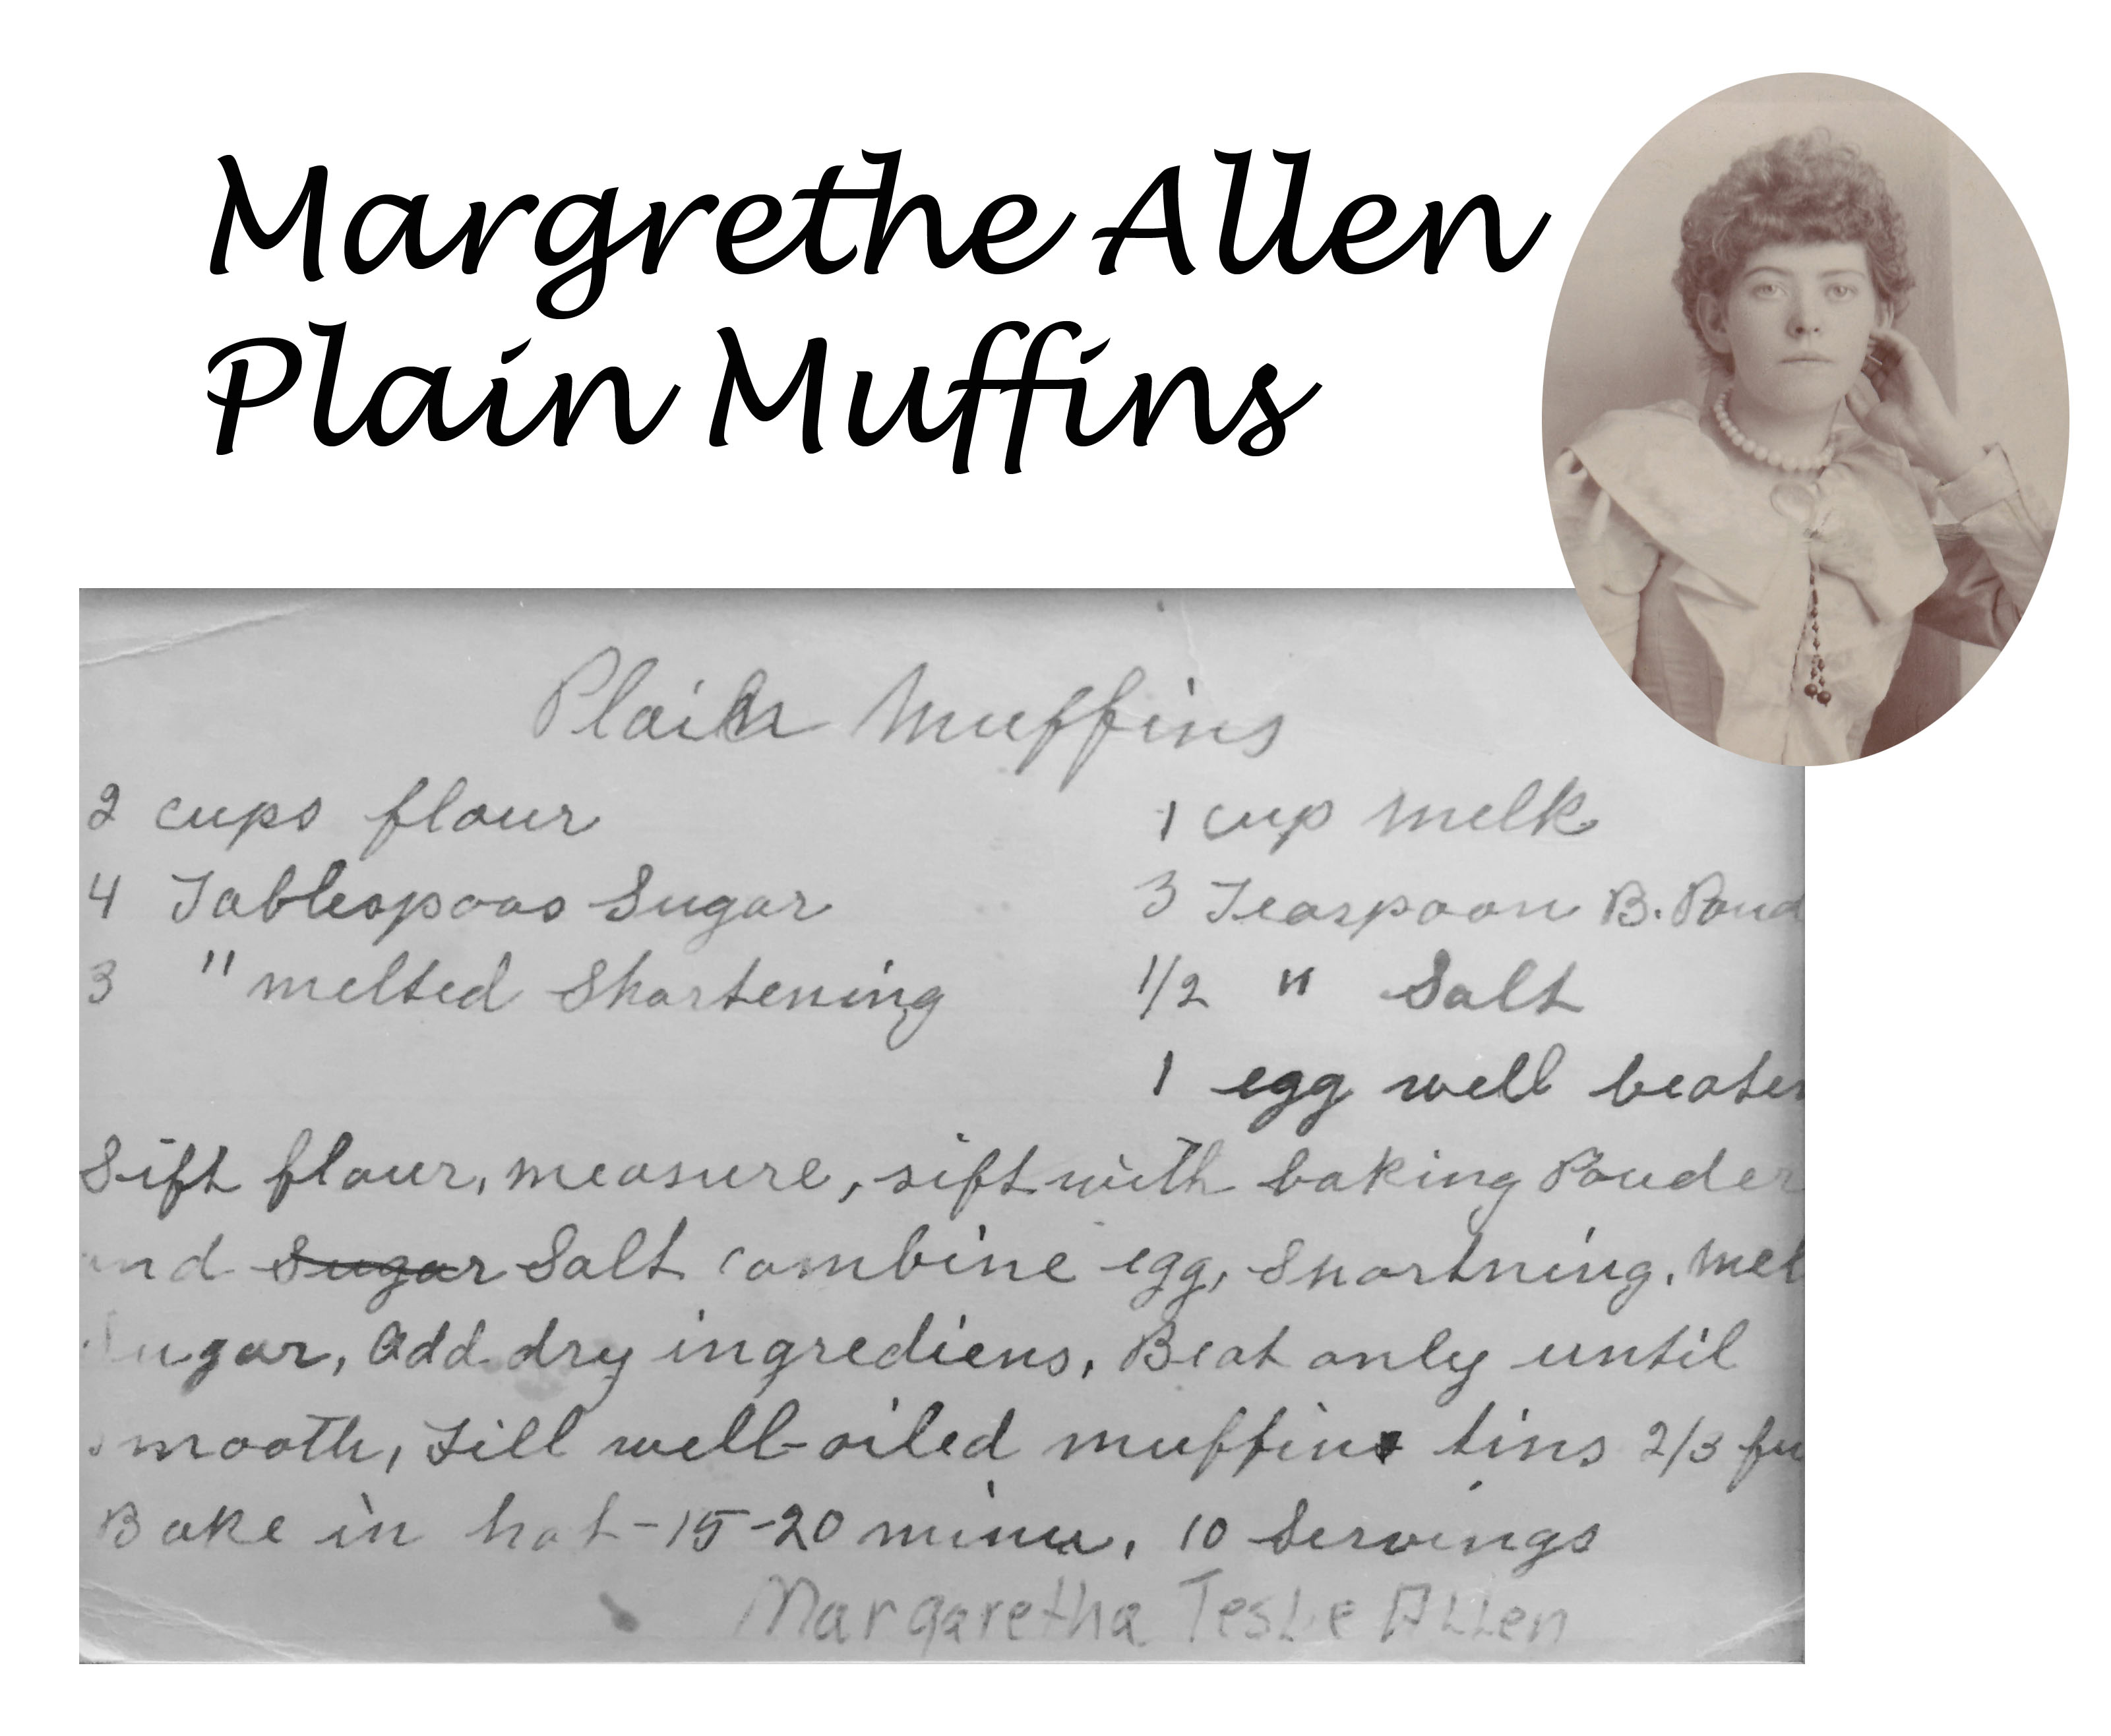 Margrethe Allen
Plain Muffins
Plain Muffins
2 cups flour
1 cup melk
4 Tablespoos Sugar
3 Teaspoon B. Poud
3 " melted Shortening
1/2 " Salt
1 egg well beaten
Sift flour, measure, sift with baking Pouder
and Sugar Salt combine egg, Shortning, mel
Sugar, Add dry ingrediens, Beat only until
smooth, Fill well-oiled muffin tins 2/3 fu
Bake in hot - 15-20 minu, 10 Servings
Margaretha Teslie Allen